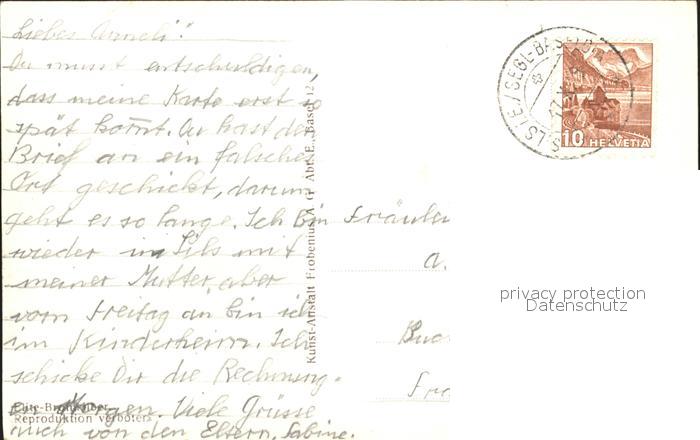 Liebes Anneli!
Du musst entschuldigen,
dass meine Karte erst so
spät kommt. Du hast den
Brief an ein falsches
Ort geschickt, darum
geht es so lange. Ich bin
wieder in Sils mit
meiner Mutter, aber
vom Freitag an bin ich
im Kinderheim. Ich
schicke Dir die Rechnung
Morgen. Viele Grüsse
auch von den Eltern, Sabine.
Elite-Bromsilber
Reproduktion verboten
Kunst-Anstalt Frobenius A. G. Abt. E., Basel 12
Fräulei
a.
Buc
Fra
SILS I.E./SEGL-BASELGIA
10
HELVETIA
privacy protection
Datenschutz